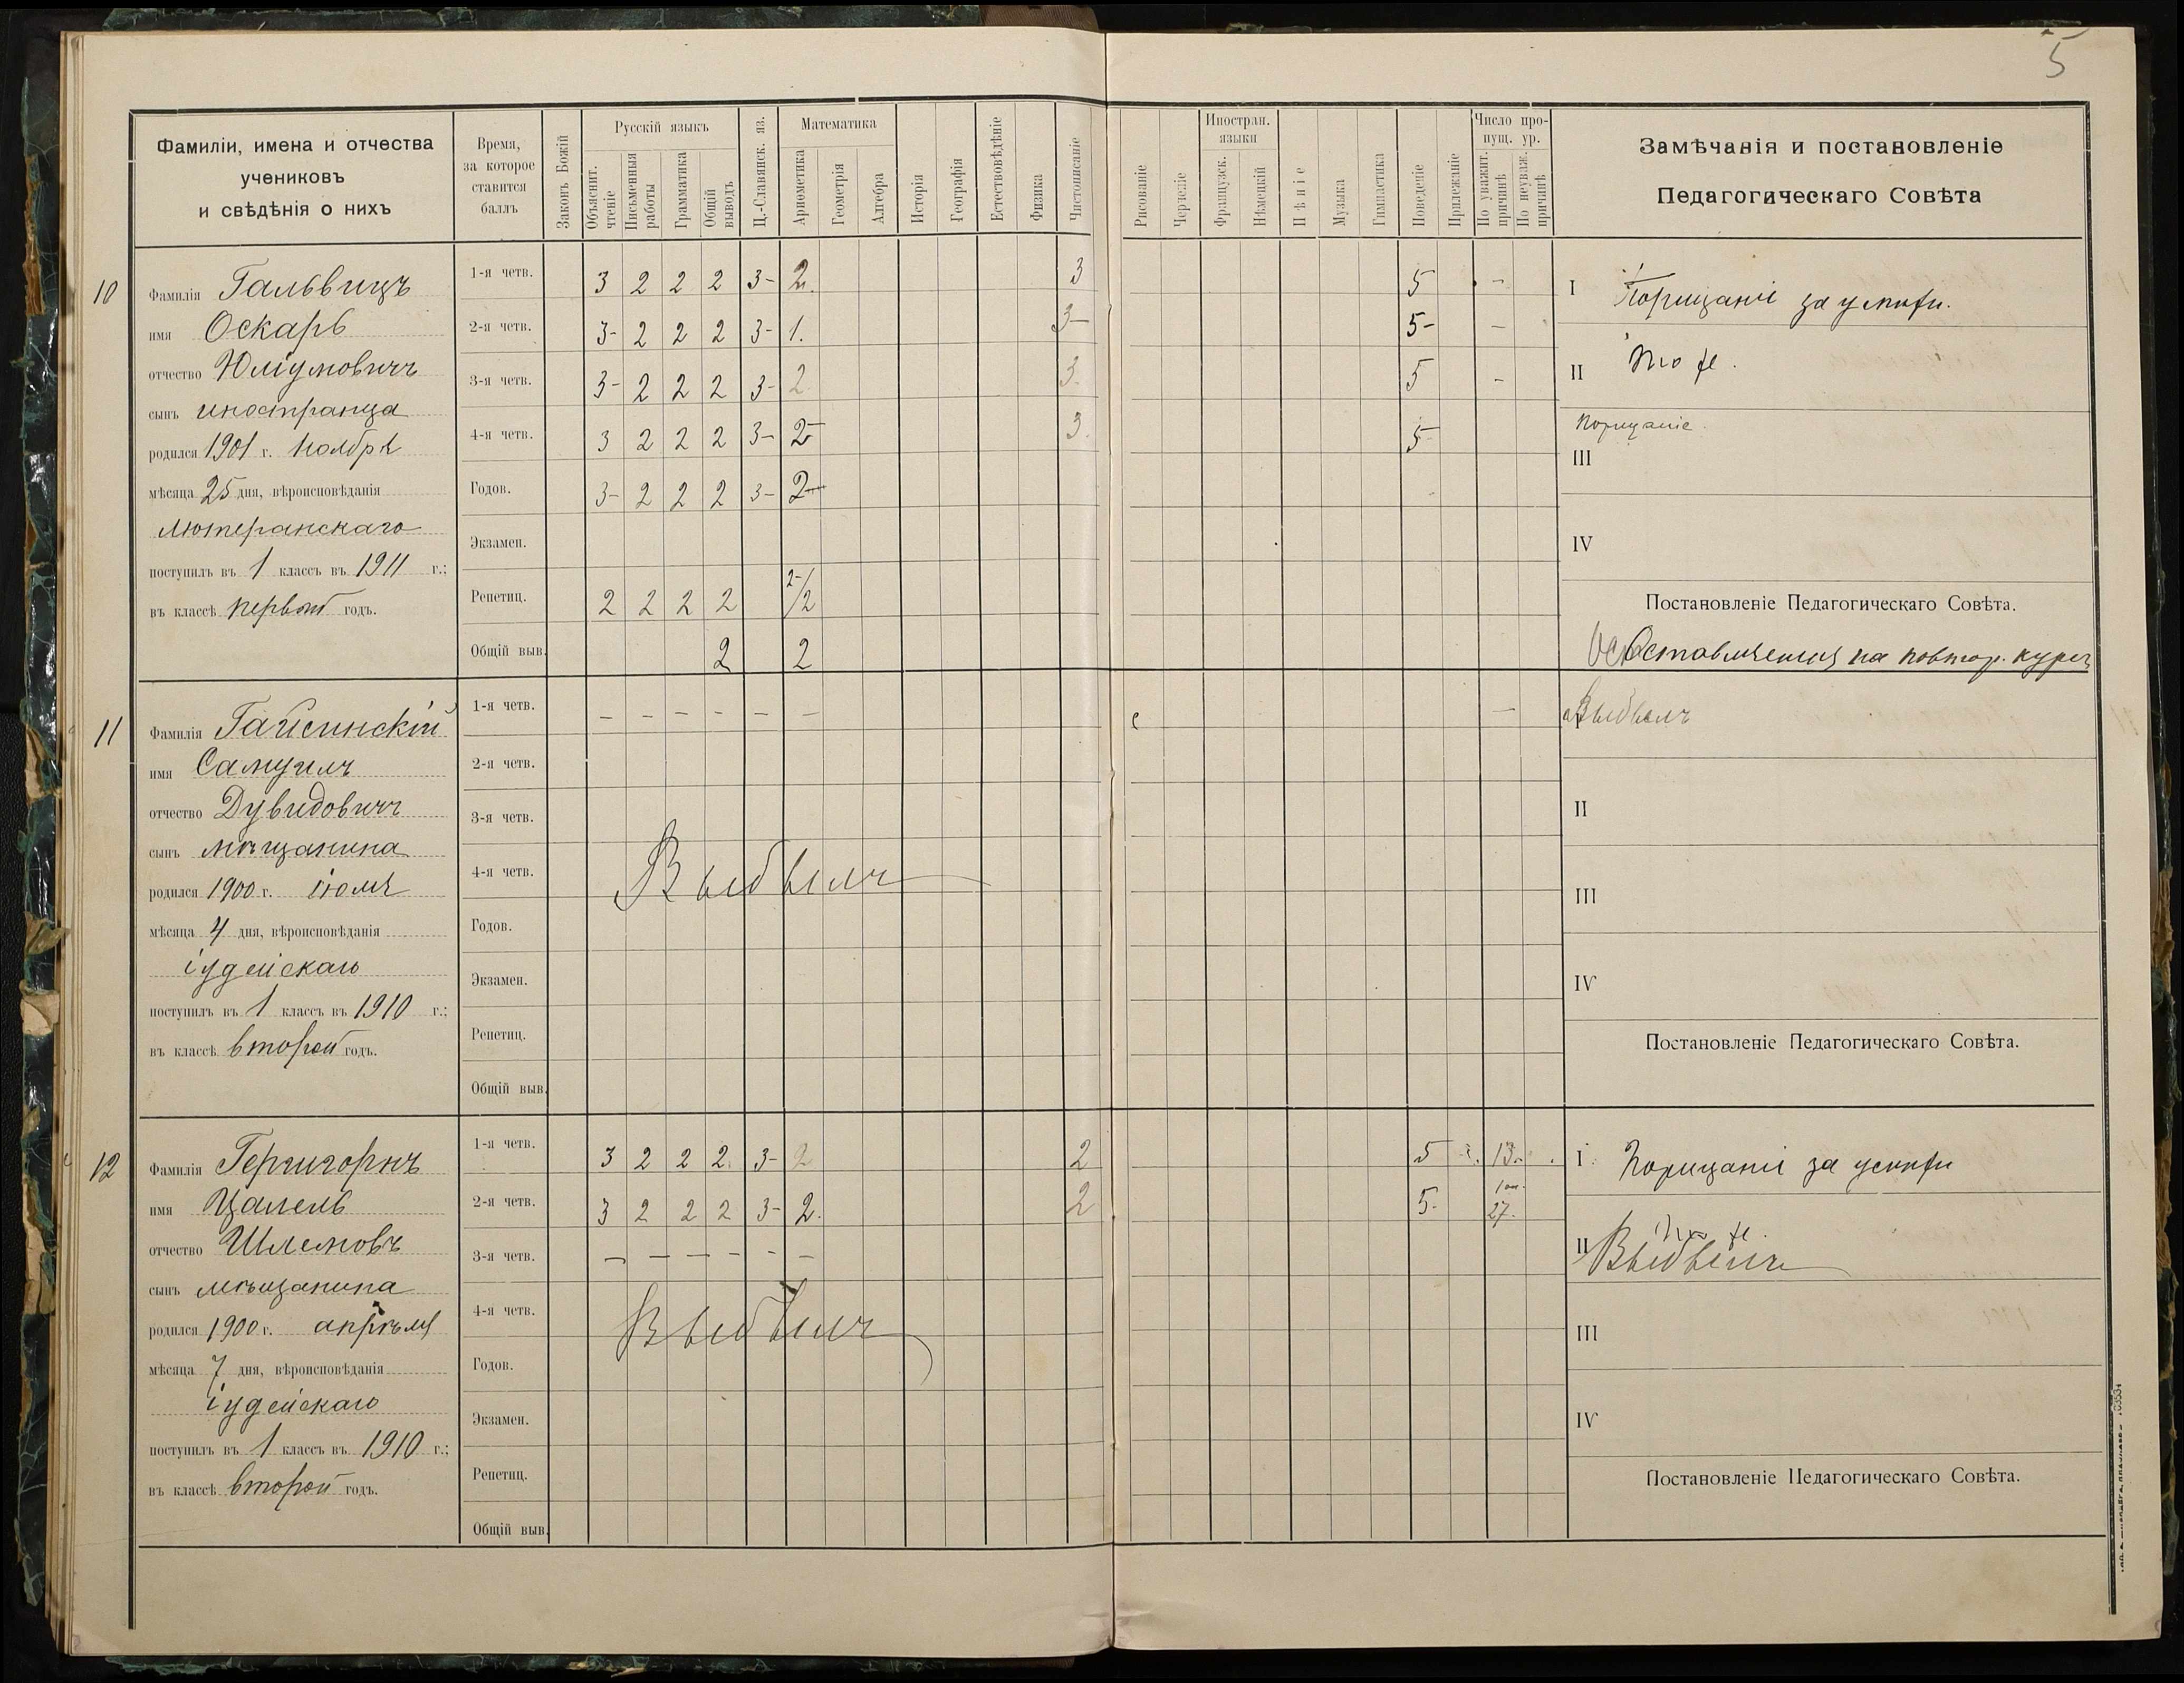 5
Фамиліи, имена и отчества
учениковъ
и свѣдѣнія о нихъ
Время,
за которое
ставится
баллъ
Законъ Божій
Русскій языкъ
Объяснит. чтеніе
Письменныя работы
Грамматика
Общій выводъ
Ц.-Славянск. яз.
Математика
Ариѳметика
Геометрія
Алгебра
Исторія
Географія
Естествовѣдѣніе
Физика
Чистописаніе
Рисованіе
Черченіе
Иностран. языки
Французск.
Нѣмецкій
Пѣніе
Музыка
Гимнастика
Поведеніе
Прилежаніе
Число пропущ. ур.
По уважит. причинѣ
По неуваж. причинѣ
Замѣчанія и постановленіе
Педагогическаго Совѣта
10
Фамилія Гальвицъ
имя Оскаръ
отчество
сынъ иностранца
родился 1901 г. ноября
мѣсяца 25 дня, вѣроисповѣданія
лютеранскаго
поступилъ въ 1 классъ въ 1911 г.;
въ классѣ первый годъ.
1-я четв. 3 2 2 2 3- 2. 3 5 -
2-я четв. 3- 2 2 2 3- 1. 3- 5- -
3-я четв. 3- 2 2 2 3- 2 3. 5 -
4-я четв. 3 2 2 2 3- 2- 3. 5-
Годов. 3- 2 2 2 3- 2-
Экзамен.
Репетиц. 2 2 2 2 2-/2
Общій выв. 2 2
I Порицаніе за успѣхи.
II То же.
Порицаніе.
III
IV
Постановленіе Педагогическаго Совѣта.
Оставляется на повтор. курсъ
11
Фамилія Гайсинскій
имя Самуилъ
отчество Дувидовичъ
сынъ мѣщанина
родился 1900 г. іюля
мѣсяца 4 дня, вѣроисповѣданія
іудейскаго
поступилъ въ 1 классъ въ 1910 г.;
въ классѣ второй годъ.
1-я четв. - - - - - - -
2-я четв.
3-я четв.
4-я четв. Выбылъ
Годов.
Экзамен.
Репетиц.
Общій выв.
Выбылъ
II
III
IV
Постановленіе Педагогическаго Совѣта.
12
Фамилія
имя Цалель
отчество Шлемовъ
сынъ мѣщанина
родился 1900 г. апрѣля
мѣсяца 7 дня, вѣроисповѣданія
іудейскаго
поступилъ въ 1 классъ въ 1910 г.;
въ классѣ второй годъ.
1-я четв. 3 2 2 2. 3- 2 2 5 13.
2-я четв. 3 2 2 2 3- 2. 2 5. 27.
3-я четв. - - - - - -
4-я четв. Выбылъ
Годов.
Экзамен.
Репетиц.
Общій выв.
I. Порицаніе за успѣхи
То же.
II Выбылъ
III
IV
Постановленіе Педагогическаго Совѣта.